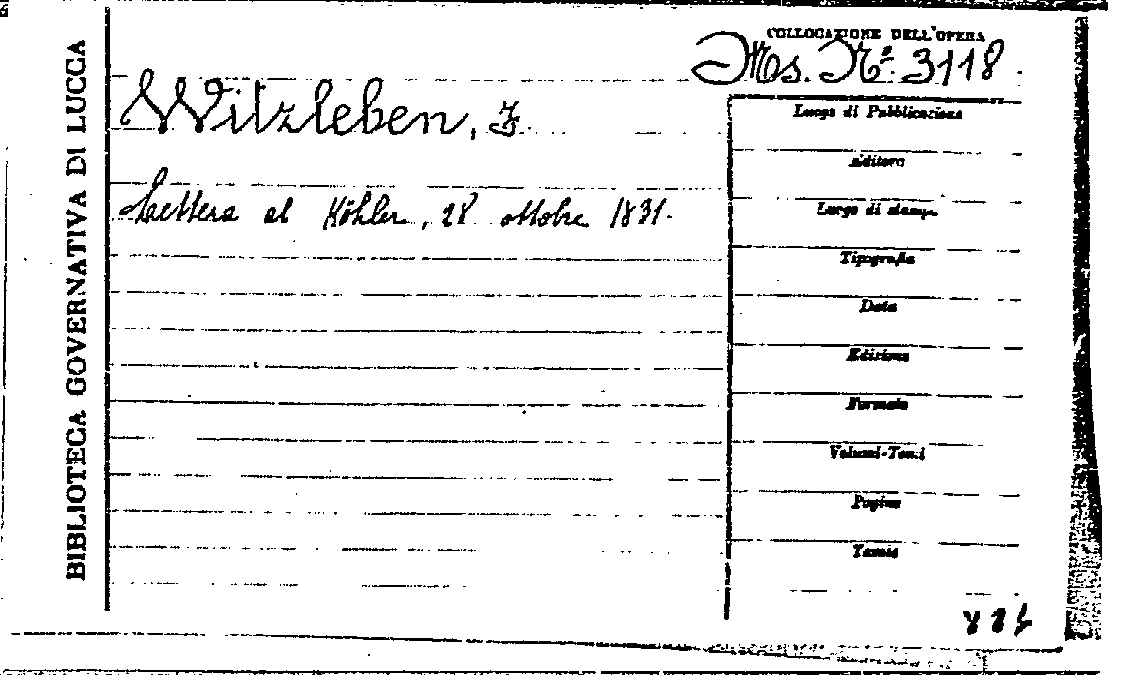 BIBLIOTECA GOVERNATIVA DI LUCCA
COLLOCAZIONE DELL'OPERA
Ms. Nº. 3118
Witzleben, F.
Lettera al Köhler, 28 ottobre 1831.
Luogo di Pubblicazione
Editore
Luogo di stampa
Tipografia
Data
Edizione
Formato
Volumi-Tomi
Pagine